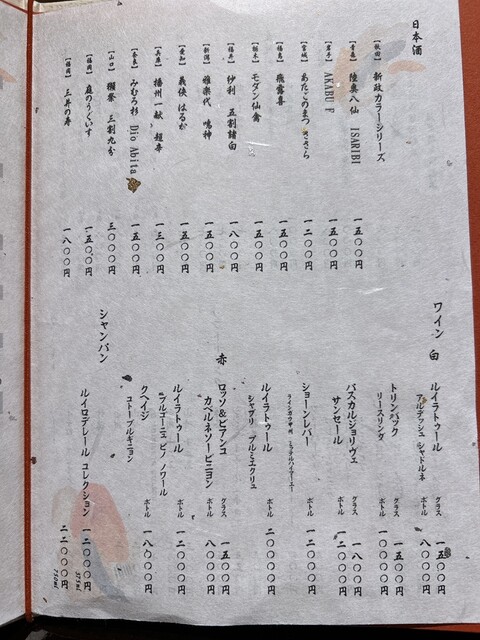 日本酒
【秋田】 新政カラーシリーズ
【青森】 陸奥八仙 ISARIBI 一五〇〇円
【岩手】 AKABU F 一五〇〇円
【宮城】 あたごのまつ ささら 一二〇〇円
【福島】 飛露喜 一五〇〇円
【栃木】 モダン仙禽 一五〇〇円
【福井】 紗利 五割諸白 一八〇〇円
【新潟】 雅楽代 鳴神 一五〇〇円
【愛知】 義侠 はるか 一五〇〇円
【兵庫】 播州一献 超辛 一三〇〇円
【奈良】 みむろ杉 Dio Abita 一五〇〇円
【山口】 獺祭 三割九分 三〇〇〇円
【福岡】 庭のうぐいす 一五〇〇円
【福岡】 三井の寿 一八〇〇円
ワイン 白
ルイラトゥール グラス 一五〇〇円
アルデッシュ シャドルネ ボトル 八〇〇〇円
トリンバック グラス 一五〇〇円
リースリング ボトル 八〇〇〇円
パスカルジョリヴェ グラス 一八〇〇円
サンセール ボトル 一二〇〇〇円
ショーンレバー ボトル 一二〇〇〇円
ルイラトゥール ボトル 二〇〇〇〇円
シャブリ プルミエクリュ
赤
ロッソ&ビアンコ グラス 一五〇〇円
カベルネソービニヨン ボトル 八〇〇〇円
ルイラトゥール ボトル 一二〇〇〇円
ブルゴーニュ ピノ ノワール
クヘイジ ボトル 一八〇〇〇円
コトーブルギニョン
シャンパン
ルイロデレール コレクション 一二〇〇〇円 375ml
二二〇〇〇円 750ml